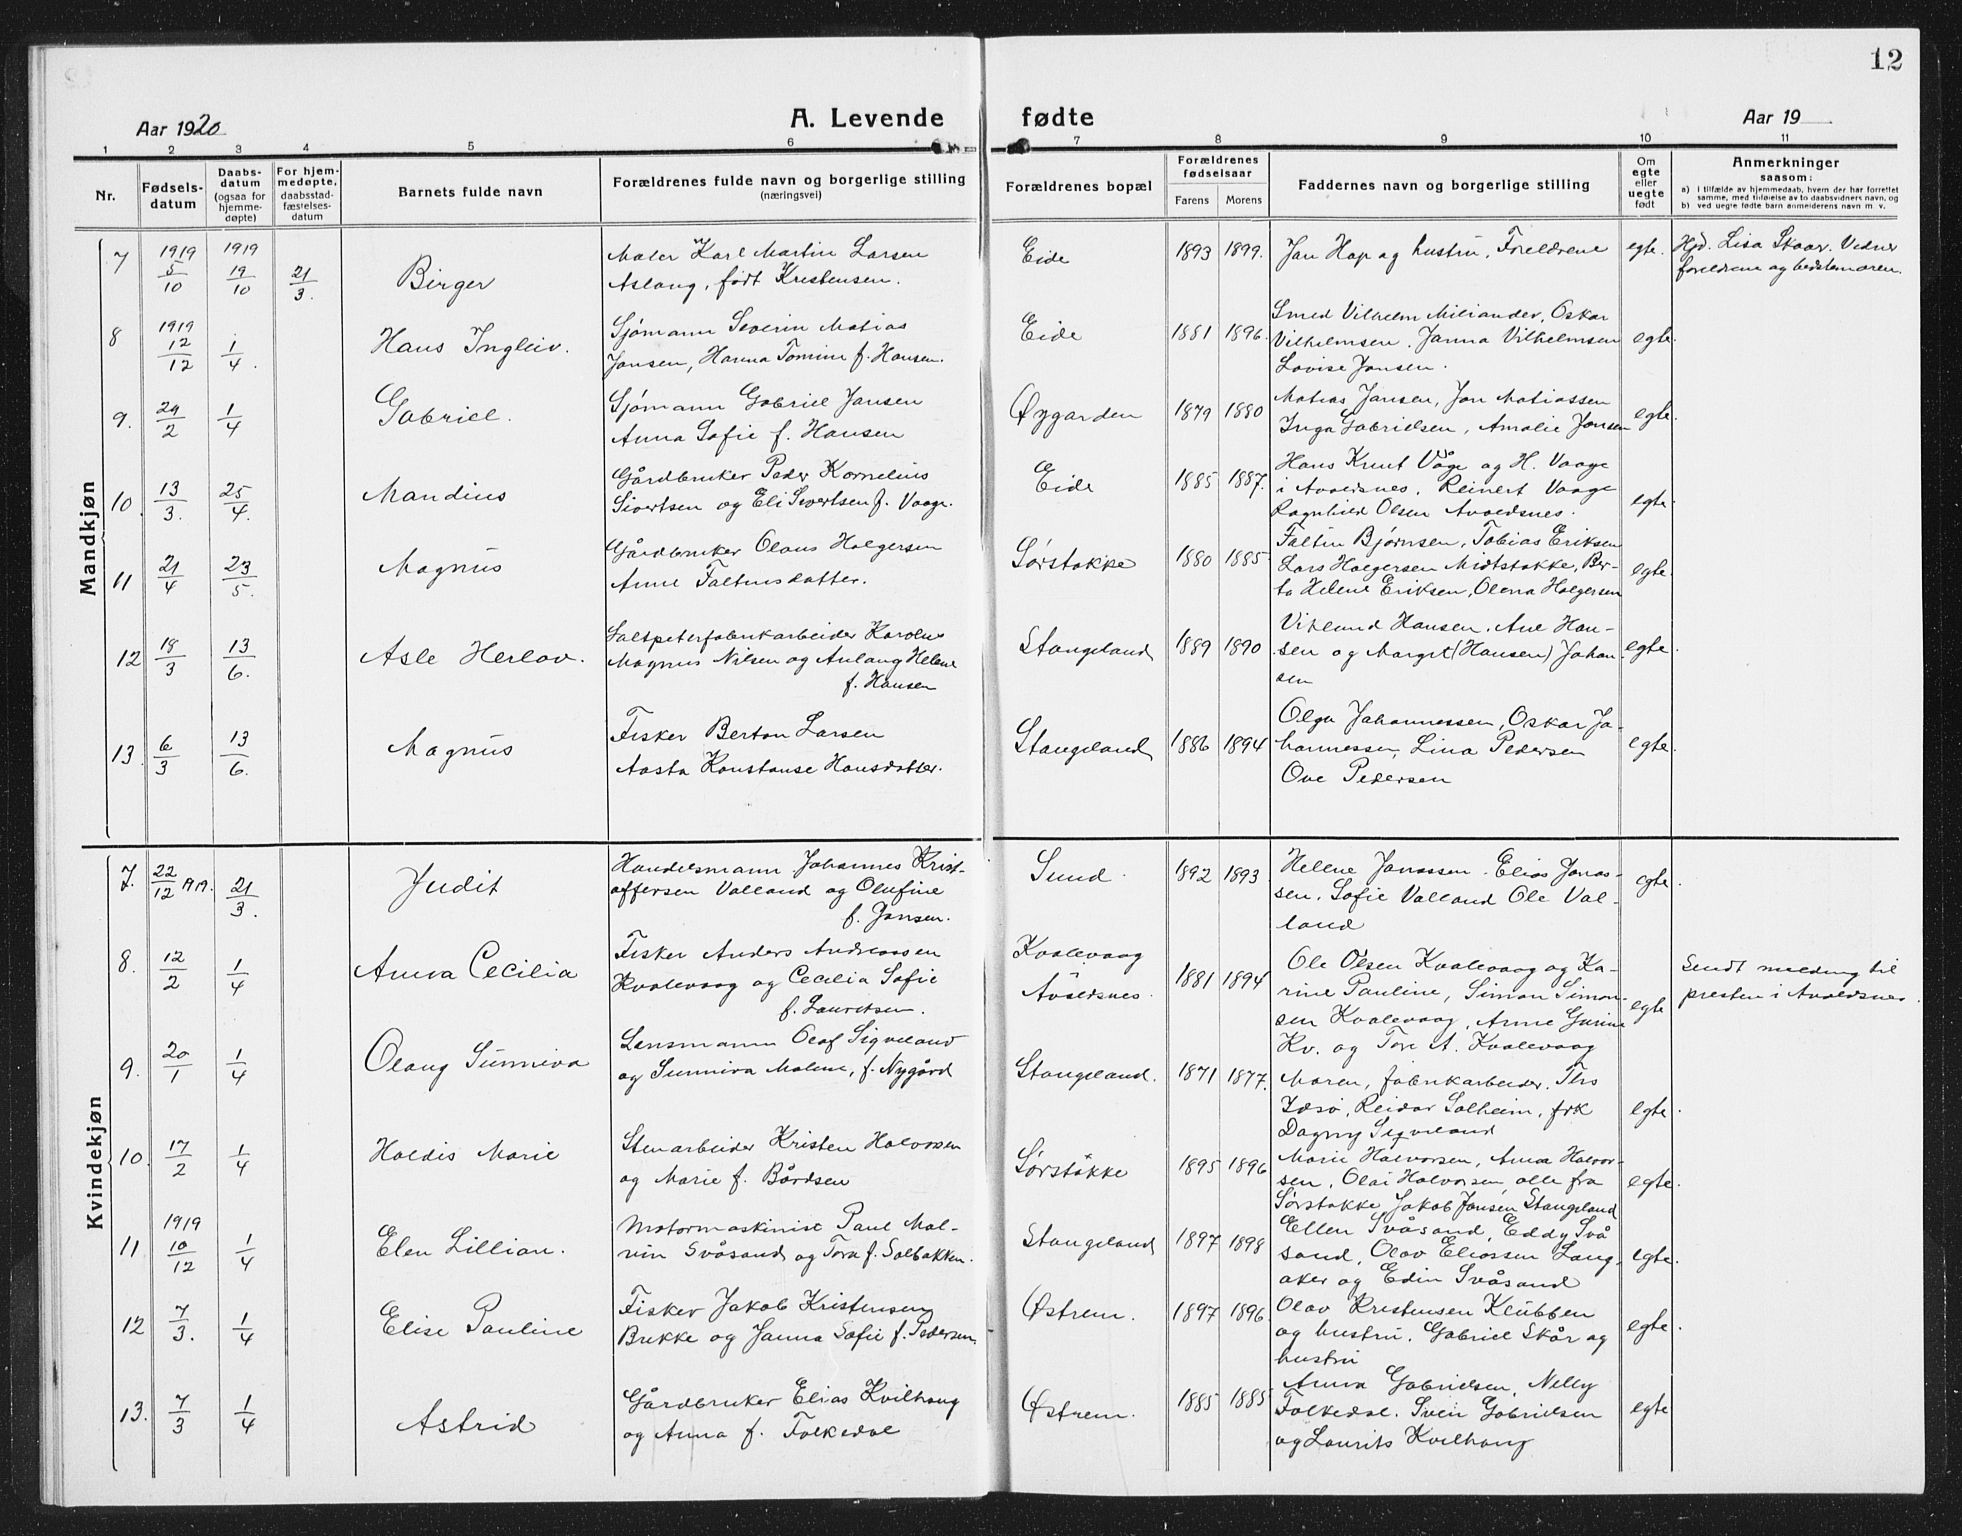 12
Aar 1920
A. Levende fødte
Aar 19
1 2 3 4 5 6 7 8 9 10 11
Nr.
Fødselsdatum
Daabsdatum (ogsaa for hjemmedøpte)
For hjemmedøpte, daabsstadfæstelsesdatum
Barnets fulde navn
Forældrenes fulde navn og borgerlige stilling
(næringsvei)
Forældrenes bopæl
Forældrenes fødselsaar
Farens Morens
Faddernes navn og borgerlige stilling
Om egte eller uegte født
Anmerkninger
saasom:
a) i tilfælde av hjemmedaab, hvem der har forrettet
samme, med tilføielse av to daabsvidners navn, og
b) ved uegte fødte barn anmelderens navn m. v.
Mandkjøn
7 1919 5/10 1919 19/10 21/3. Birger
Maler Karl Martin Larsen
Aslaug, født Kristensen.
Eide 1893 1899. Jan Hop og hustru, Foreldrene egte.
Hjd. Lisa Skaar. Vidner
foreldrene og bedstemoren.
8 1919 12/12 1/4. Hans Ingleiv.
Sjømann Severin Matias
Jansen, Hanna Tomine f. Hansen.
Eide 1881 1896.
Smed Vilhelm Miliander, Oskar
Vilhelmsen. Janna Vilhelmsen
Lovise Jansen.
egte.
9. 29/2 1/4 Gabriel.
Sjømann Gabriel Jansen
Anna Sofie f. Hansen
Øygarden 1879 1880
Matias Jansen, Jon Matiassen
Inga Gabrielsen, Amalie Jansen
egte.
10. 13/3. 25/4. Mandius
Gårdbruker Peder Kornelius
Sivertsen og Eli Sivertsen f. Vaage.
Eide 1885 1887.
Hans Knut Våge og H. Vaage
i Avaldsnes. Reinert Vaage
Ragnhild Olsen Avaldsnes.
egte.
11 21/4 23/5. Magnus
Gårdbruker Olaus Holgersen
Anne Faltinsdatter.
Sørstokke 1880 1885.
Faltin Bjørnsen, Tobias Eriksen
Lars Holgersen Midtstokke, Ber-
ta Helene Eriksen, Olena Holgersen
egte.
12 18/3 13/6. Asle Herlov.
Saltpeterfabrikarbeider Karolus
Magnus Nilsen og Anlaug Helene
f. Hansen
Stangeland 1889 1890
Vikland Hansen. Ane Han-
sen og Margit (Hansen) Johan-
sen
egte.
13. 6/3 13/6. Magnus
Fisker Berton Larsen
Aasta Konstanse Hansdatter.
Stangeland 1886 1894
Olga Johannessen, Oskar Jo-
hannessen, Lina Pedersen
Ove Pedersen
egte.
Kvindekjøn
7. 22/12 1919. 21/3. Judit
Handelsmann Johannes Krist-
offersen Valland og Olufine
f. Jansen.
Sund. 1892 1893
Helene Jonassen. Elias Jonas-
sen. Sofie Valland Ole Val-
land
egte.
8. 12/2 1/4 Anna Cecilia
Fisker Anders Andreassen
Kvalevaag og Cecilia Sofie
f. Lauritsen.
Kvalevaag
Avaldsnes. 1881 1894
Ole Olsen Kvalevaag og Ka-
rine Pauline, Simon Simon-
sen Kvalevaag, Anne Gurine
Kv. og Tore A. Kvalevaag
egte
Sendt melding til
presten i Avaldsnes.
9. 20/1 1/4 Olaug Sunniva
Lensmann Olaf Sigveland
og Sunniva Malene, f. Nygård
Stangeland. 1871 1877.
Moren, fabrikarbeider. Ths
Idsø, Reidar Solheim, frk
Dagny Sigveland
egte.
10. 17/2 1/4 Haldis Marie
Stenarbeider Kristen Halvorsen
og Marie f. Bårdsen
Sørstokke 1895 1896
Marie Halvorsen, Anna Halvor-
sen, Olai Halvorsen, alle fra
Sørstokke, Jakob Jansen Stangeland
egte.
11 1919 10/12 1/4 Elen Lillian.
Motormaskinist Paul Mal-
vin Svåsand og Tora f. Solbakken.
Stangeland 1897 1898
Ellen Svåsand, Eddy Svå
sand, Olav Eliassen Lang-
aker og Edin Svåsand
egte.
12 7/3. 1/4 Elise Pauline
Fisker Jakob Kristensen
Bukke og Janna Sofie f. Pedersen.
Østrem. 1897 1896.
Olav Kristensen Klubben
og hustru. Gabriel Skår og
hustru
egte.
13. 7/3 1/4 Astrid
Gårdbruker Elias Kvilhaug
og Anna f. Folkedal
Østrem. 1885 1885
Anna Gabrielsen, Nelly
Folkedal. Svein Gabrielsen
og Laurits Kvilhaug
egte